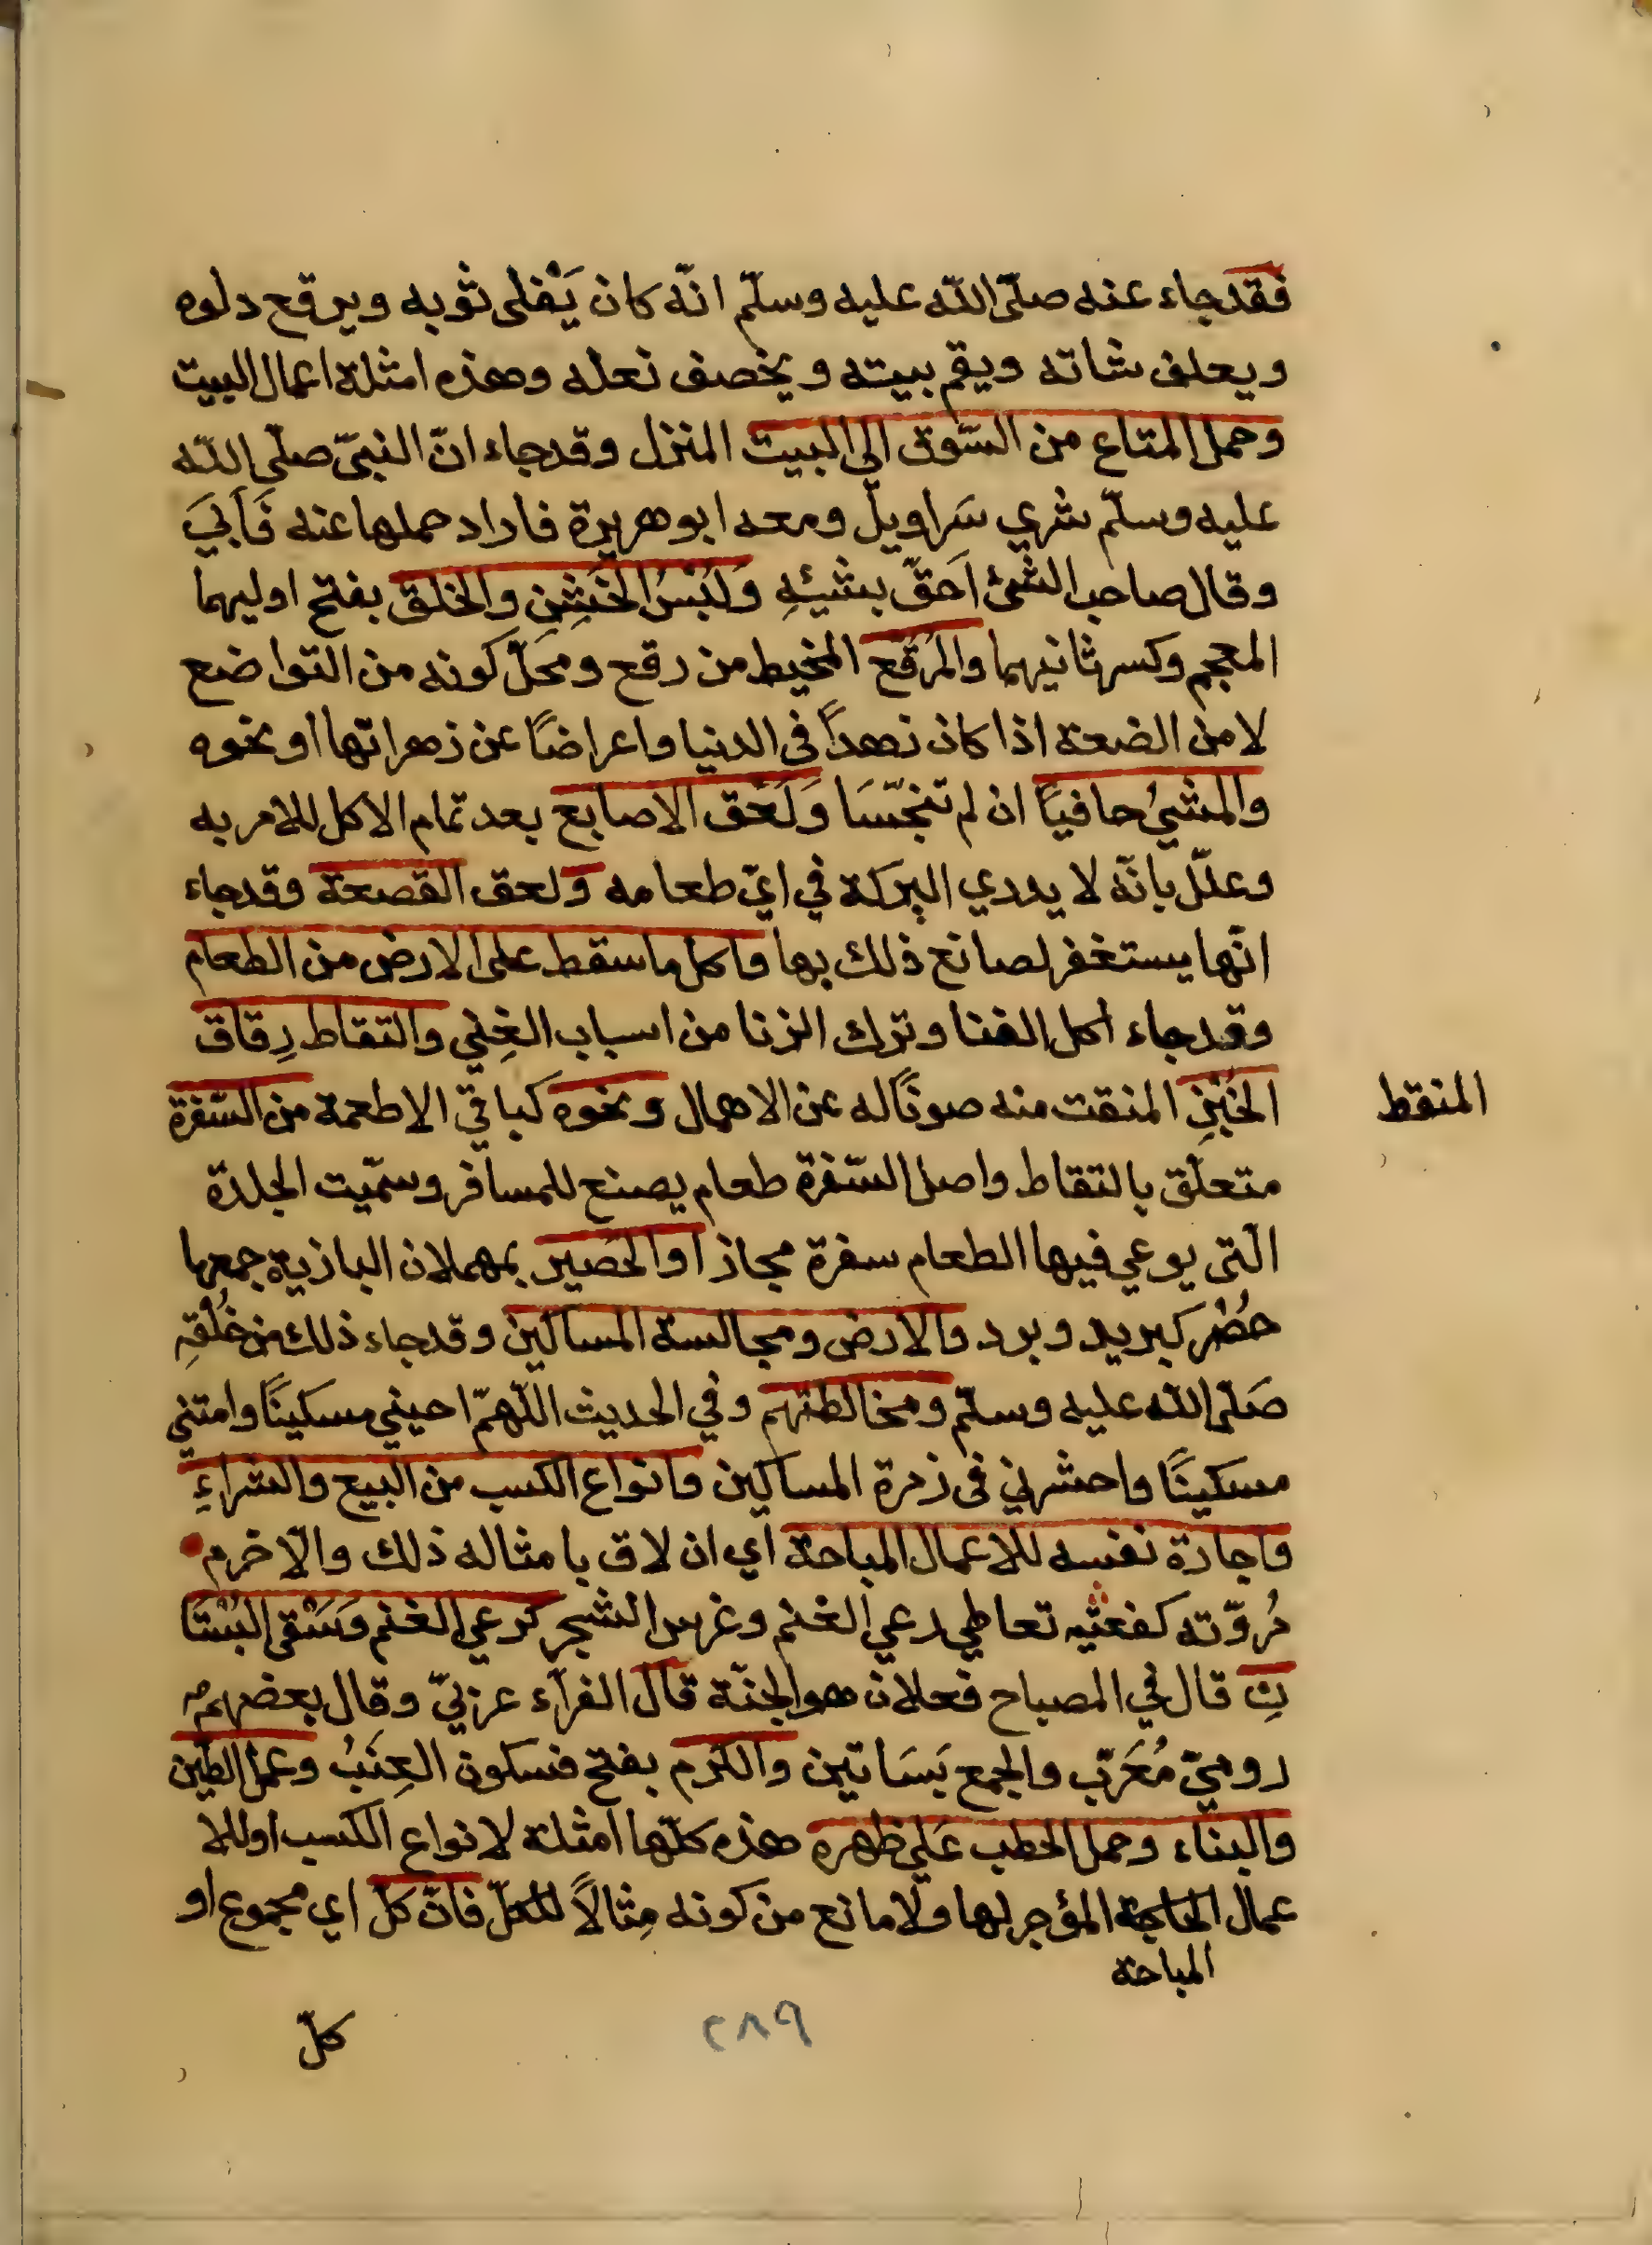 فقد جاء عنه صلّى اللّه عليه وسلّم انّه كان يَفْلى ثوبه ويرقع دلوه
ويعلف شاته ويقم بيته ويخصف نعله وهذه امثلة اعمال البيت
وحمل المتاع من السّوق الى البيت المنزل وقد جاء انّ النبىّ صلّى اللّه
عليه وسلّم شري سَراويلَ ومعه ابو هريرة فاراد حملها عنه فَاَبيَ
وقال صاحب الشئ اَحَقّ بشيئهِ وَلَبْسُ الخَشِنِ والخلق بفتح اوليهما
المعجم وكسر ثانيهما والمُرَقّع المخيط من رقع ومحَلّ كونه من التواضع
لا من الضعة اذا كان زهداً فى الدنيا واعراضًا عن زهراتها او نحوه
والمشيُ حافيًا ان لم تنجّسَا وَلَعْق الاصابع بعد تمام الاكل للامر به
وعللّ بانّه لا يدري البركة في ايّ طعامه ولعق القصعة وقد جاء
انّها يستغفر لصانع ذلك بها واكل ما سقط على الارض من الطعام
وقد جاء اكل الفنا وترك الزنا من اسباب الغِني والتقاط دِقاق
الخُبْزِ المنقت منه صونًا له عن الاهمال ونحوه كباقي الاطعمة من السّفرة
المنقط
متعلّق بالتقاط واصل السّفرة طعام يصنع للمسافر وسمّيت الجلدة
الّتى يوعي فيها الطعام سفرة مجازا او الحَصير بمهملان البازية جمعها
حصُر كبريد وبرد والارض ومجالسة المساكين وقد جاء ذلك من خُلُقهِ
صَلّى اللّه عليه وسلّم ومخالطتهم وفي الحديث اللّهمّ احيني مسكينًا وامتني
مسكينًا واحشرني فى زمرة المساكين وانواع الكسب من البيع والشراءِ
واجارة نفسه للاعمال المباحة اي ان لاق بامثاله ذلك والّا خرم
مُروّته كفعثيه تعاطي رعي الغنم وغرس الشجر كرعي الغنم وَسَقى البُسْتَا
نِ قال في المصباح فعلان هو الجنّة قال الفرّاء عربيّ وقال بعضهم
روميّ مُعَرّب والجمع بَسَاتين والكَرم بفتح فسكون العِنَبُ وعمل الطّين
والبناء وحمل الحطب عَلي ظهره هذه كلّها امثلة لانواع الكسب او للا
عمال الحاجة المؤجر لها ولا مانع من كونه مِثالاً للكلّ فانّ كلّ اي مجموع او
المباحة
كلّ
٢٨٩